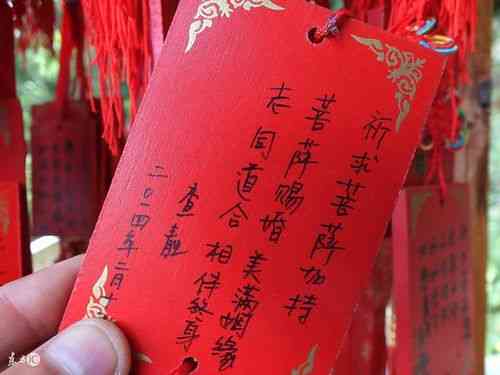 祈求菩萨加持
菩萨赐婚 美满姻缘
志同道合 相伴终身
查
二〇一四年二月十
东方IC